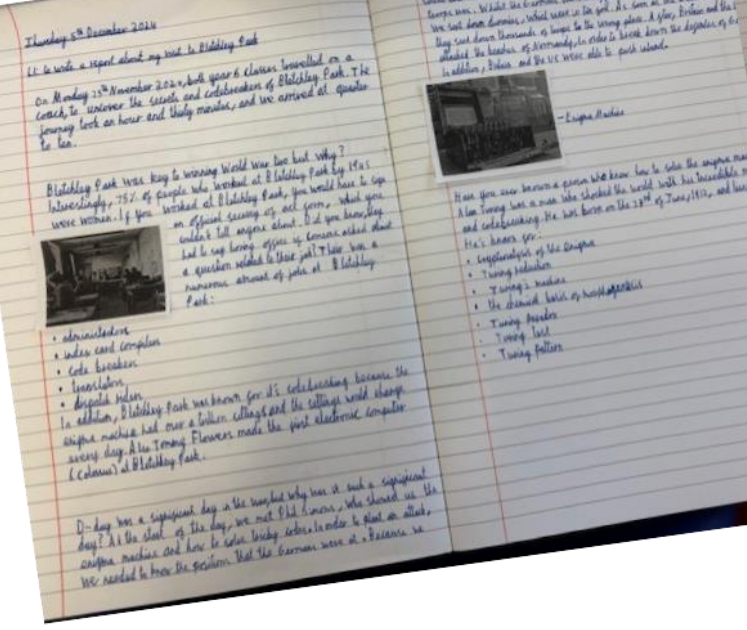 Thursday 5th December 2024
LI: to write a report about my visit to Bletchley Park
On Monday 25th November 2024, both year 6 classes travelled on a
coach, to uncover the secrets and codebreakers of Bletchley Park. The
journey took an hour and thirty minutes, and we arrived at quarter
to ten.
Bletchley Park was key to winning World War Two but why?
Interestingly, 75% of people who worked at Bletchley Park by 1945
were women. If you worked at Bletchley Park, you would have to sign
an official secrecy act form, which you
couldn't tell anyone about. Did you know, they
had to say boring office if someone asked about
a question related to their job? There was a
numerous amount of jobs at Bletchley
Park:
• administrators
• index card compilers
• code breakers
• translators
• dispatch riders
In addition, Bletchley Park was known for it's codebreaking because the
enigma machine had over a billion settings and the settings would change
every day. Also Tommy Flowers made the first electronic computer
(Colossus) at Bletchley Park.
D-day was a significant day in the war, but why was it such a significant
day? At the start of the day, we met Phil Simons, who showed us the
enigma machine and how to solve tricky codes. In order to plant an attack,
we needed to know the position that the German were at. Because we
troops was. Whilst the German
We sent down dummies, which were in the As soon as the
they sent down thousands of troops to the wrong place. After, Britain and the
attacked the beaches of Normandy, in order to break down the defences of
In addition, Britain and the US were able to push inland.
– Enigma Machine
Have you ever known a person who knew how to solve the enigma
Alan Turing was a man who shocked the world with his incredible
and codebreaking. He was born on the 23rd of June, 1912, and
He's known for:
• cryptanalysis of the Enigma
• Turing reduction
• Turing's machine
• the chemical basis of morphogenesis
• Turing Paradox
• Turing test
• Turing pattern